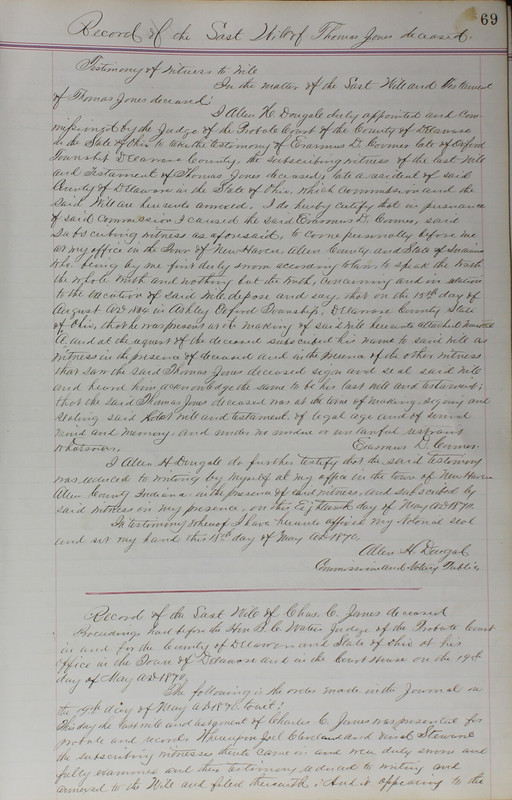 69
Record of the Last Will of Thomas Jones deceased.
Testimony of Witness to Will
In the matter of the Last Will and Testament
of Thomas Jones deceased
I Allen H. Dougale duly appointed and Com-
missioned by the Judge of the Probate Court of the County of Delaware
in the State of Ohio to take the testimony of Erasmus D. Cormer late of Oxford
Township Delaware County, the subscribing witness of the last Will
and Testament of Thomas Jones deceased, late a resident of said
County of Delaware in the State of Ohio, which Commission and the
said Will are hereunto annexed, I do hereby certify that in pursuance
of said Commission I caused the said Erasmus D. Cormer, said
Subscribing witness as aforesaid, to come personally before me
at my office in the Town of New Haven, Allen County and State of Indiana
who being by me first duly sworn according to law to speak the truth
the whole truth and nothing but the truth, concerning and in relation
to the execution of said Will, depose and say, that on the 15th day of
August AD 1864 in Ashley Oxford Township, Delaware County State
of Ohio, that he was present at the making of said Will hereunto attached marked
A, and at the request of the deceased subscribed his name to said will as
witness in the presence of deceased and in the presence of the other witness
that saw the said Thomas Jones deceased sign and seal said Will
and heard him acknowledge the same to be his last will and testament;
that the said Thomas Jones deceased was at the time of making, signing and
sealing said last will and testament of legal age and of sound
mind and memory, and under no undue or unlawful restraint
whatsoever.
Erasmus D. Cormer
I Allen H. Dougale do further testify that the said testimony
was reduced to writing by myself at my office in the town of New Haven
Allen County Indiana in the presence of said witness, and subscribed by
said witness in my presence, on this Eighteenth day of May AD 1870.
In testimony whereof I have hereunto affixed my Notarial seal
and set my hand this 18th day of May AD 1870.
Allen H Dougale
Commissioner and Notary Public
Record of the Last Will of Chas. C. Jones deceased
Proceedings had before the Hon B. C. Waters Judge of the Probate Court
in and for the County of Delaware and State of Ohio at his
office in the Town of Delaware and in the Court House on the 19th
day of May AD 1870,
The following is the order made in the Journal on
the 19th day of May AD 1870 to wit:
This day the last will and testament of Charles C. Jones was presented for
probate and record. Whereupon Joel Cleveland and Stewart
the subscribing witnesses thereto came in and were duly sworn and
fully examined and their testimony reduced to writing and
annexed to the Will and filed therewith; And it appearing to the